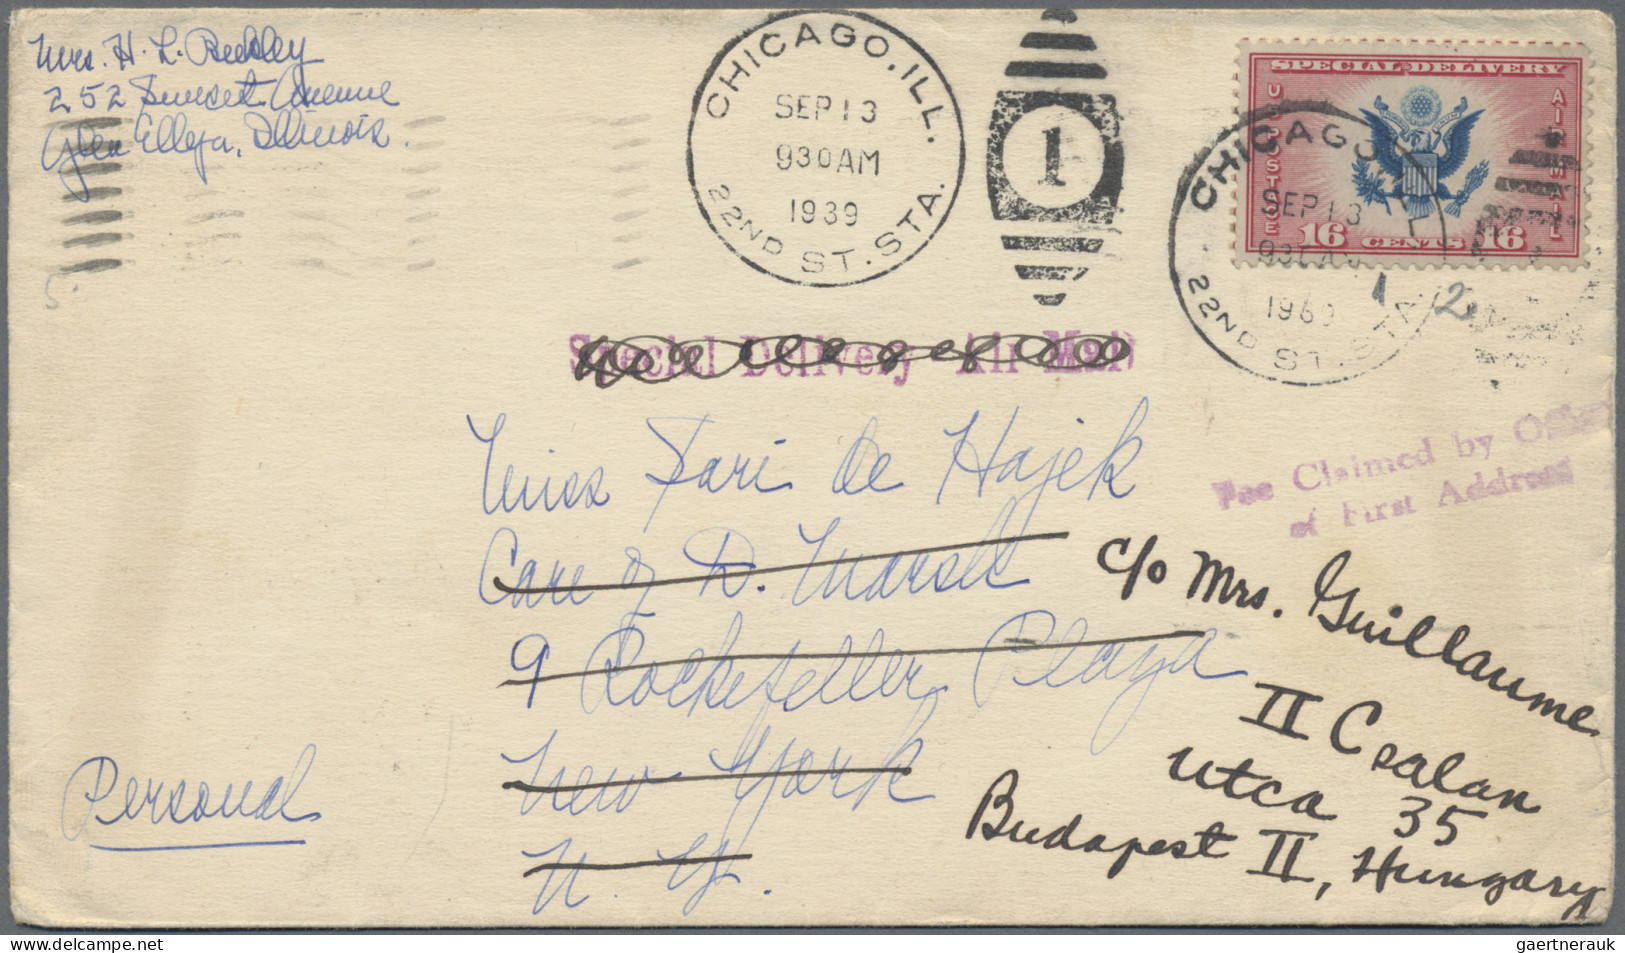 Mrs. H. L.
252 Sunset Avenue
Glen Ellyn, Illinois.
CHICAGO, ILL.
SEP 13
930 AM
1939
22ND ST. STA.
1
SPECIAL DELIVERY
U.S. POSTAGE
AIR MAIL
16 CENTS 16
CHICAGO, ILL
SEP 13
930 AM
1939
22ND ST. STA
1 2
Special Delivery Air Mail
Fee Claimed by Office
of First Address
Miss Sari de Hajek
Care of D. Marsh
9 Rockefeller Plaza
New York
N. Y.
c/o Mrs. Guillaume
II Csalan
utca 35
Budapest II, Hungary
Personal
gaertnerauk
www.delcampe.net